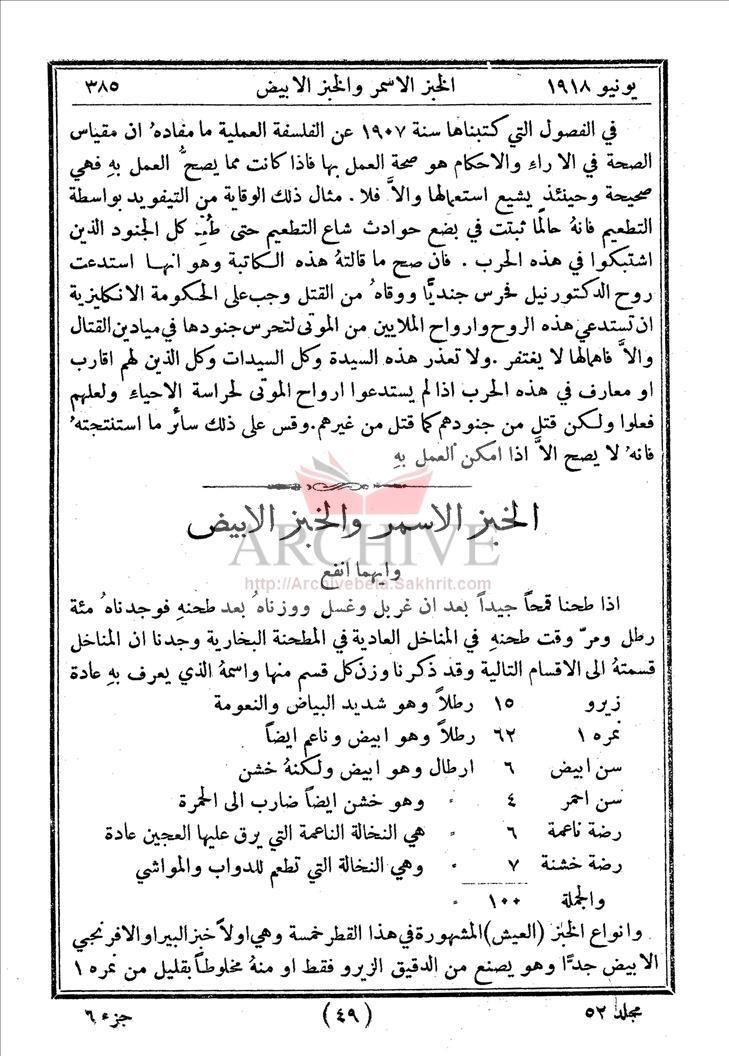 يونيو ١٩١٨ الخبز الاسمر والخبز الابيض ٣٨٥
في الفصول التي كتبناها سنة ١٩٠٧ عن الفلسفة العملية ما مفادهُ ان مقياس
الصحة في الاراءِ والاحكام هو صحة العمل بها فاذا كانت مما يصحُّ العمل بهِ فهي
صحيحة وحينئذٍ يشيع استعمالها والاَّ فلا . مثال ذلك الوقاية من التيفويد بواسطة
التطعيم فانهُ حالما ثبتت في بضع حوادث شاع التطعيم حتى طُعِّم كل الجنود الذين
اشتبكوا في هذه الحرب . فان صح ما قالتهُ هذه الكاتبة وهو انها استدعت
روح الدكتور نيل فحرس جنديًّا ووقاهُ من القتل وجب على الحكومة الانكليزية
ان تستدعي هذه الروح وارواح الملايين من الموتى لتحرس جنودها في ميادين القتال
والاَّ فاهمالها لا يغتفر . ولا تعذر هذه السيدة وكل السيدات وكل الذين لهم اقارب
او معارف في هذه الحرب اذا لم يستدعوا ارواح الموتى لحراسة الاحياءِ ولعلهم
فعلوا ولكن قتل من جنودهم كما قتل من غيرهم . وقس على ذلك سائر ما استنتجتهُ
فانهُ لا يصح الاَّ اذا امكن العمل بهِ
الخبز الاسمر والخبز الابيض
ARCHIVE
وايهما انفع
http://Archivebeta.Sakhrit.com
اذا طحنا قمحاً جيداً بعد ان غربل وغسل ووزناهُ بعد طحنهِ فوجدناهُ مئة
رطل ومرّ وقت طحنهِ في المناخل العادية في المطحنة البخارية وجدنا ان المناخل
قسمتهُ الى الاقسام التالية وقد ذكرنا وزن كل قسم منها واسمهُ الذي يعرف بهِ عادة
زيرو ١٥ رطلاً وهو شديد البياض والنعومة
نمره ١ ٦٢ رطلاً وهو ابيض وناعم ايضاً
سن ابيض ٦ ارطال وهو ابيض ولكنهُ خشن
سن احمر ٤ " وهو خشن ايضاً ضارب الى الحمرة
رضة ناعمة ٦ " هي النخالة الناعمة التي يرق عليها العجين عادة
رضة خشنة ٧ " وهي النخالة التي تطعم للدواب والمواشي
والجملة ١٠٠ "
وانواع الخبز (العيش) المشهورة في هذا القطر خمسة وهي اولاً خبز البير او الافرنجي
الابيض جدًّا وهو يصنع من الدقيق الزيرو فقط او منهُ مخلوطاً بقليل من نمره ١
مجلد ٥٢ (٤٩) جزء ٦